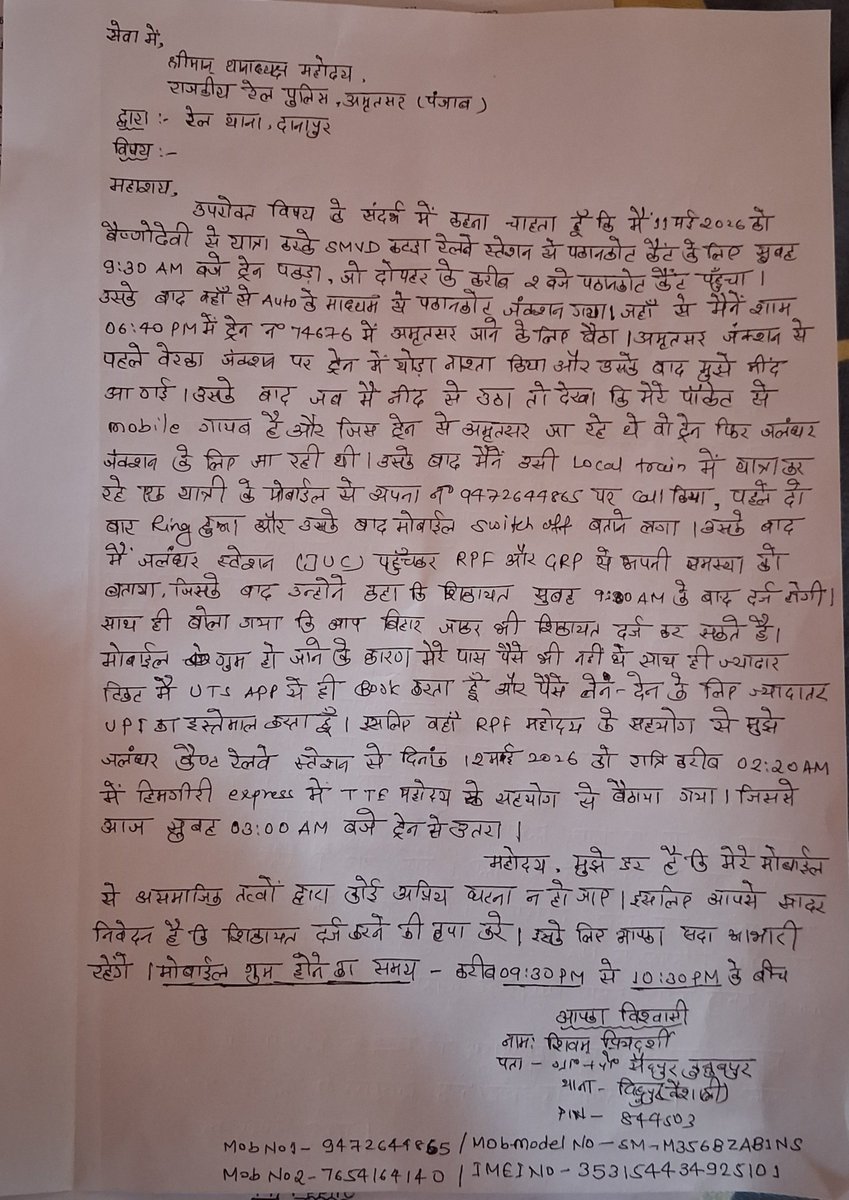 सेवा में,
श्रीमान् थानाध्यक्ष महोदय,
राजकीय रेल पुलिस, अमृतसर (पंजाब)
द्वारा :- रेल थाना, दानापुर
विषय :-
महाशय,
उपरोक्त विषय के संदर्भ में कहना चाहता हूँ कि मैं 11 मई 2026 को
वैष्णोदेवी से यात्रा करके SMVD कटड़ा रेलवे स्टेशन से पठानकोट कैंट के लिए सुबह
9:30 AM बजे ट्रेन पकड़ा, जो दोपहर के करीब 2 बजे पठानकोट कैंट पहुँचा।
उसके बाद वहाँ से Auto के माध्यम से पठानकोट जंक्शन गया। जहाँ से मैनें शाम
06:40 PM में ट्रेन नº 74676 में अमृतसर जाने के लिए बैठा। अमृतसर जंक्शन से
पहले वेरका जंक्शन पर ट्रेन में थोड़ा नाश्ता किया और उसके बाद मुझे नींद
आ गई। उसके बाद जब मै नींद से उठा तो देखा कि मेरे पॉकेट से
mobile गायब है और जिस ट्रेन से अमृतसर जा रहे थे वो ट्रेन फिर जलंधर
जंक्शन के लिए जा रही थी। उसके बाद मैनें उसी Local train में यात्रा कर
रहे एक यात्री के मोबाईल से अपना नº 9472644865 पर Call किया, पहले दो
बार Ring हुआ और उसके बाद मोबाईल switch off बताने लगा। उसके बाद
मैं जलंधर स्टेशन (JUC) पहुँचकर RPF और GRP से अपनी समस्या को
बताया, जिसके बाद उन्होने कहा कि शिकायत सुबह 9:30 AM के बाद दर्ज होगी।
साथ ही बोला गया कि आप बिहार जाकर भी शिकायत दर्ज कर सकते है।
मोबाईल गुम हो जाने के कारण मेरे पास पैसे भी नहीं थे साथ ही ज्यादार
टिकट मैं UTS APP से ही Book करता हूँ और पैसे लेने-देन के लिए ज्यादातर
UPI का इस्तेमाल करता हूँ। इसलिए वहाँ RPF महोदय के सहयोग से मुझे
जलंधर कैण्ट रेलवे स्टेशन से दिनांक 12 मई 2026 को रात्रि करीब 02:20 AM
में हिमगीरी express में TTE महोदय के सहयोग से बैठाया गया। जिससे
आज सुबह 03:00 AM बजे ट्रेन से उतरा।
महोदय, मुझे डर है कि मेरे मोबाईल
से असमाजिक तत्वों द्वारा कोई अप्रिय घटना न हो जाए। इसलिए आपसे सादर
निवेदन है कि शिकायत दर्ज करने की कृपा करे। इसके लिए आपका सदा आभारी
रहेगें। मोबाईल गुम होने का समय - करीब 09:30 PM से 10:30 PM के बीच
आपका विश्वासी
नाम: शिवम् प्रियदर्शी
पता - ग्राº+पोº सैदपुर
थाना - बिदुपुर (वैशाली)
PIN - 844503
Mob No 1 - 9472644865 / Mob model No - SM-M356BZABINS
Mob No 2 - 7654164140 / IMEI NO - 353154434925101